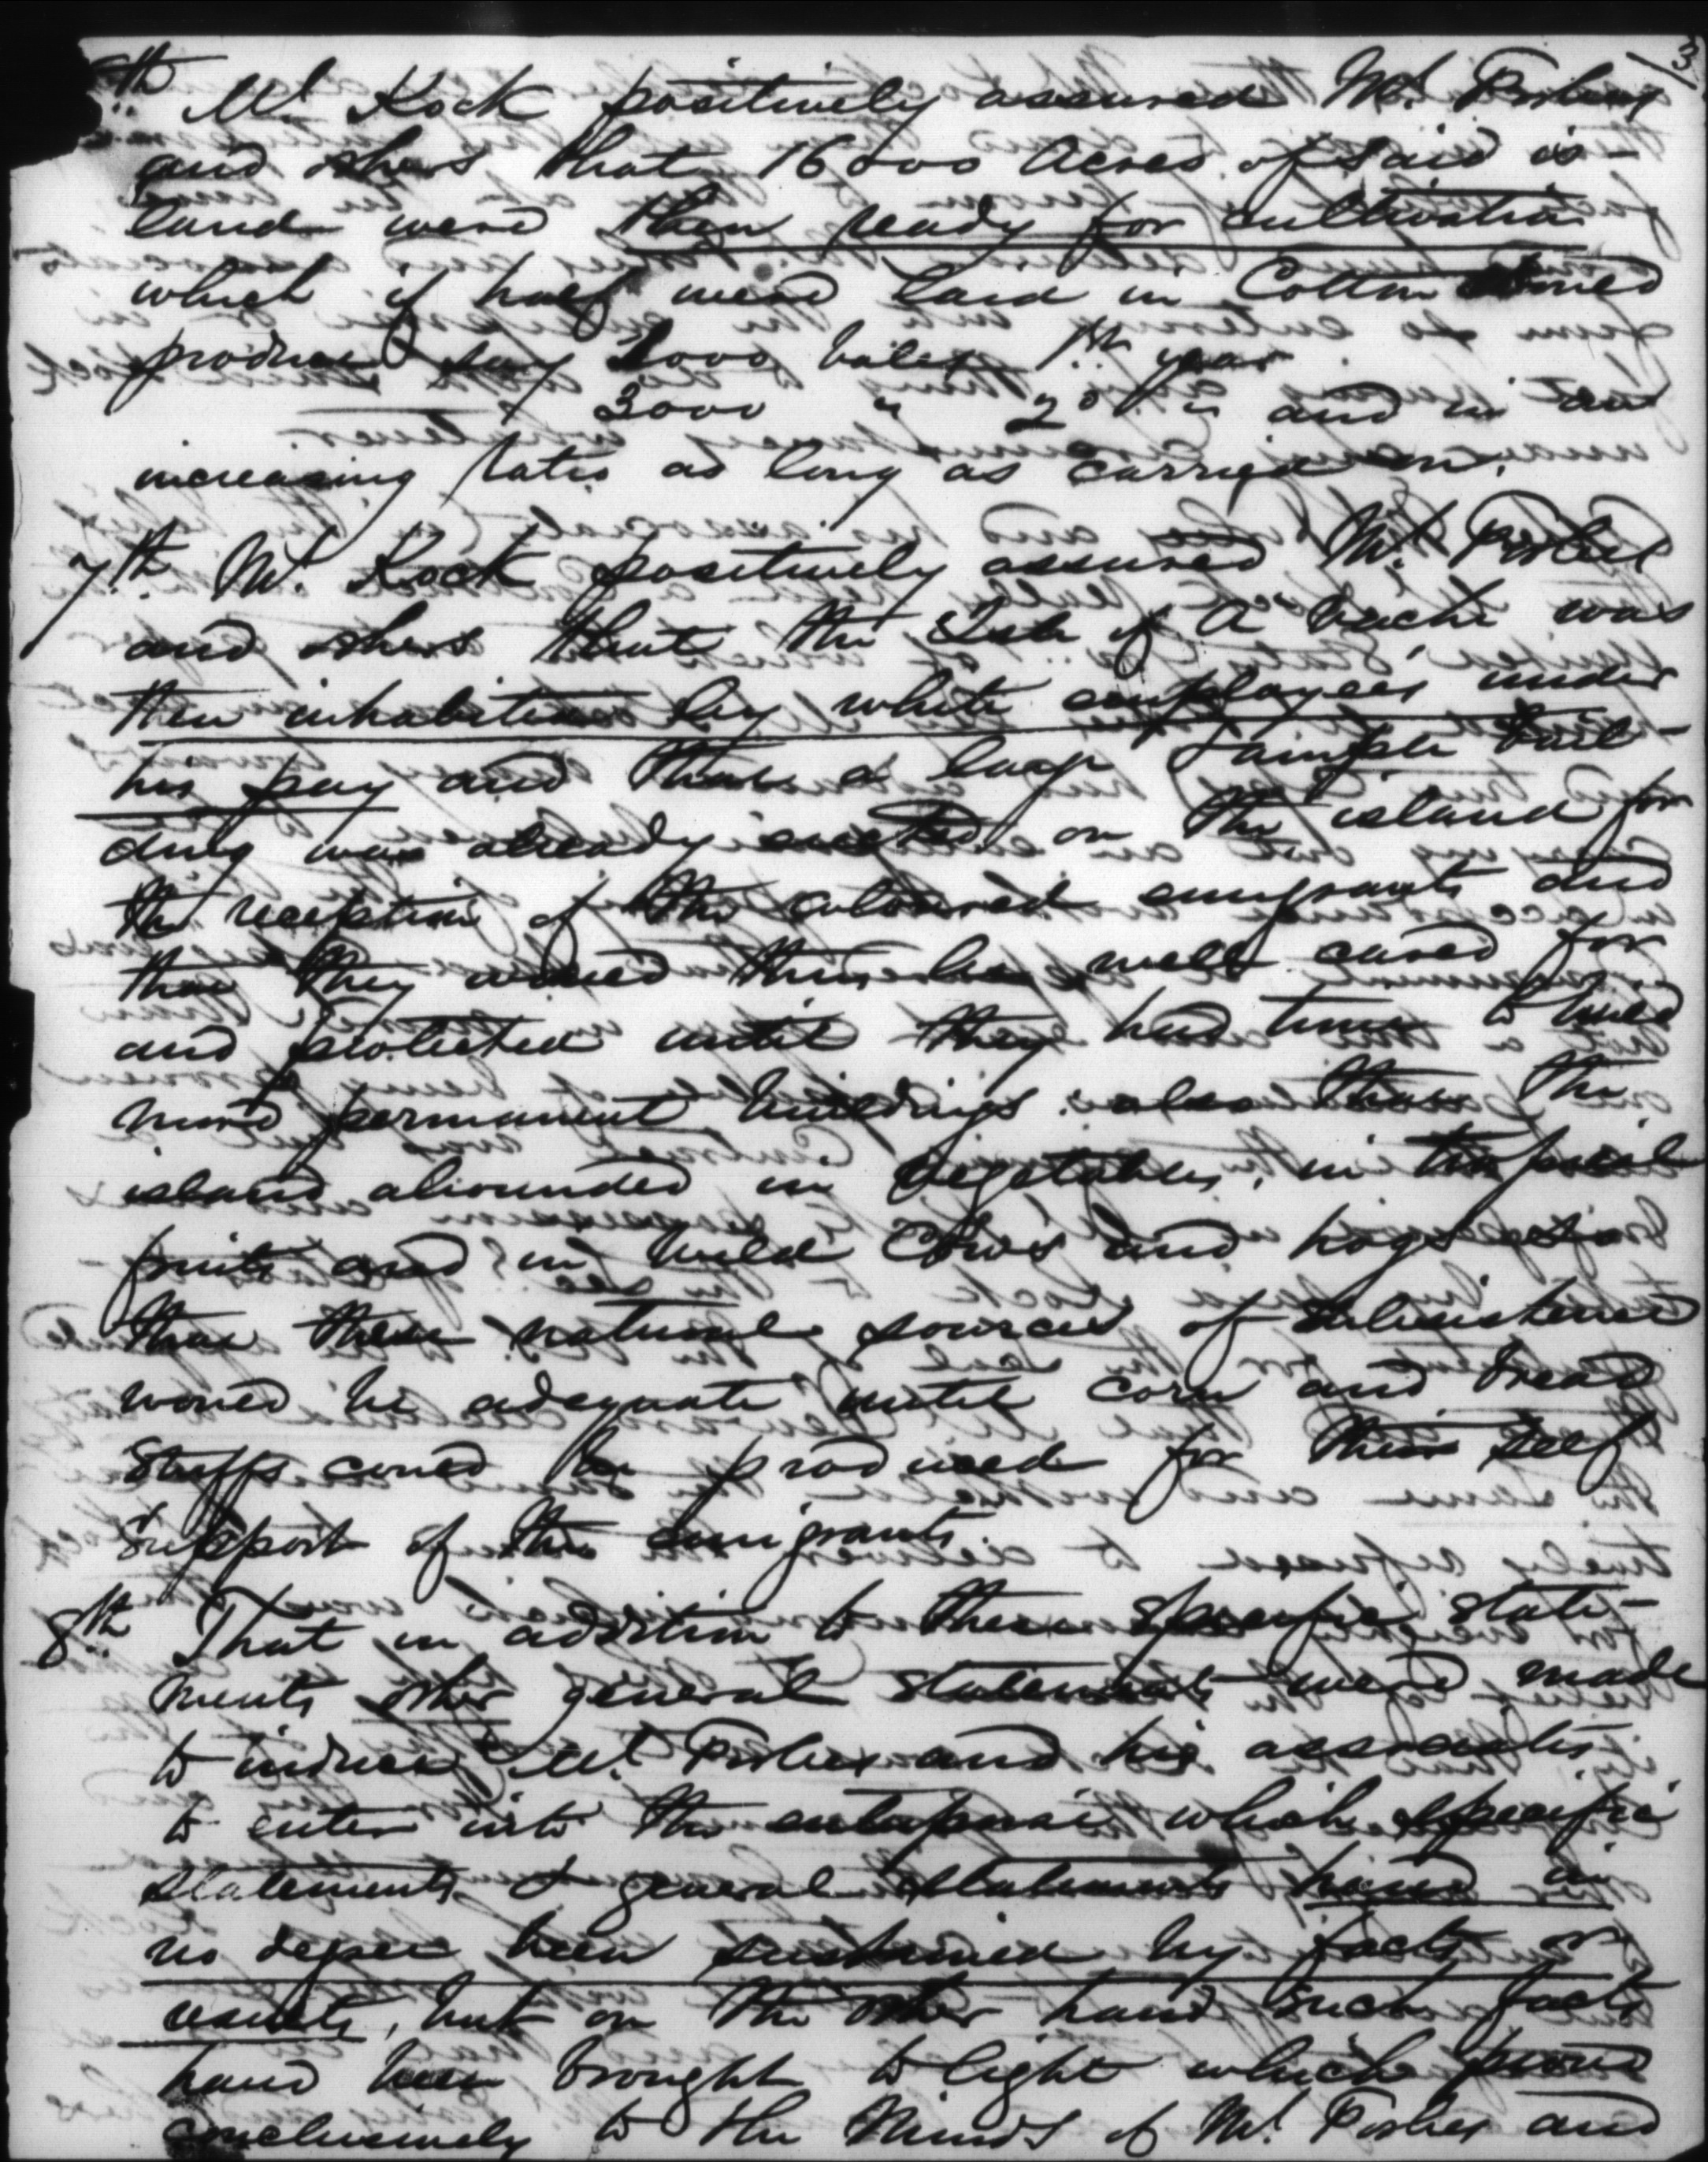 3
th Mr. Kock positively assured Mr. Forbes
and others that 16000 Acres of said is-
land were then ready for cultivation
which if half were laid in Cotton would
produce say 2000 bales 1st year
3000 " 2d " and in an
increasing ratio as long as carried on.
7th. Mr. Kock positively assured Mr. Forbes
and others that the Isle of A'Vache was
then inhabited by white employees under
his pay and that a large temple buil-
ding was already erected on the island for
the reception of the coloured emigrants and
that they would there be well cared for
and protected until they had time to build
more permanent buildings. also that the
island abounded in vegetables, in tropical
fruits and in wild cows and hogs so
that these natural sources of subsistence
would be adequate until corn and bread
stuffs could be produced for their self
support of the emigrants.
8th. That in addition to these specific state-
ments other general statements were made
to induce Mr. Forbes and his associates
to enter into the enterprise which specific
statements & general statements have in
no degree been sustained by facts or
results, but on the other hand such facts
have been brought to light which prove
conclusively to the minds of Mr. Forbes and